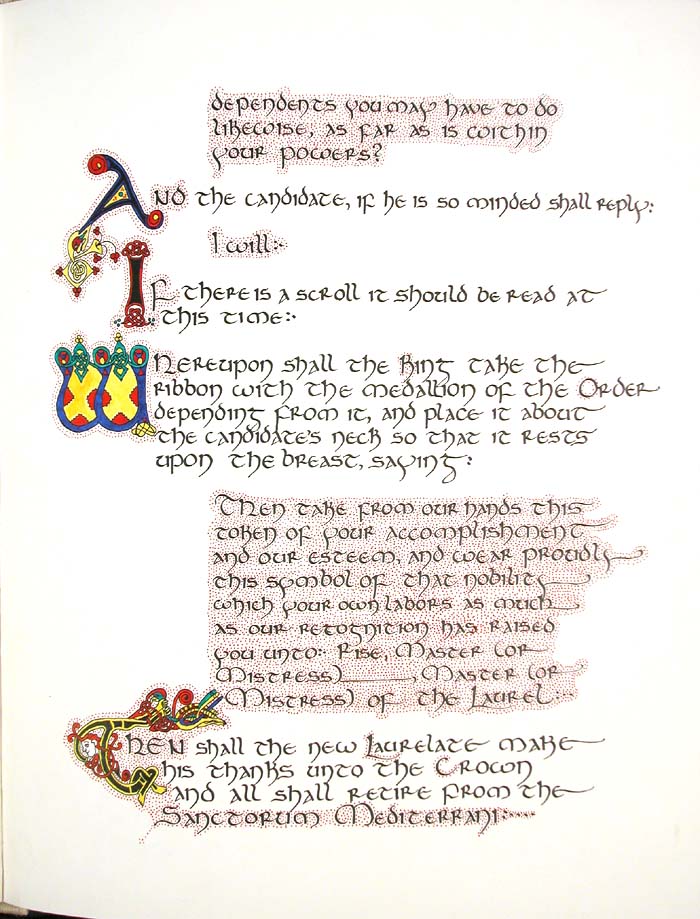 dependents you may have to do
likewise, as far as is within
your powers?
And the candidate, if he is so minded shall reply:
I will:·
If there is a scroll it should be read at
this time:·
Whereupon shall the King take the
ribbon with the medallion of the Order
depending from it, and place it about
the candidate's neck so that it rests
upon the breast, saying:
Then take from our hands this
token of your accomplishment
and our esteem, and wear proudly
this symbol of that nobility
which your own labors as much
as our recognition has raised
you unto:· Rise, Master (or
Mistress)______, Master (or
Mistress) of the Laurel:·
Then shall the new Laurelate make
his thanks unto the Crown
and all shall retire from the
Sanctorum Mediterrani:·